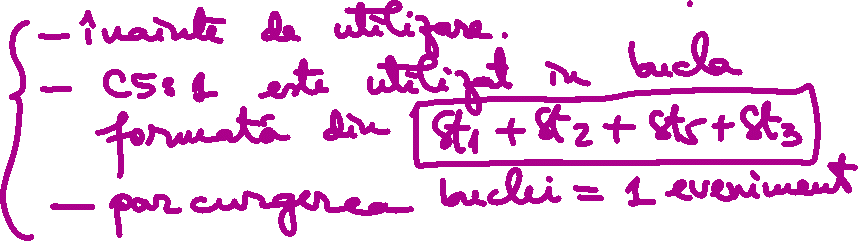 - înainte de utilizare.
- C5:1 este utilizat în bucla
formată din St1 + St2 + St5 + St3
- parcurgerea buclei = 1 eveniment